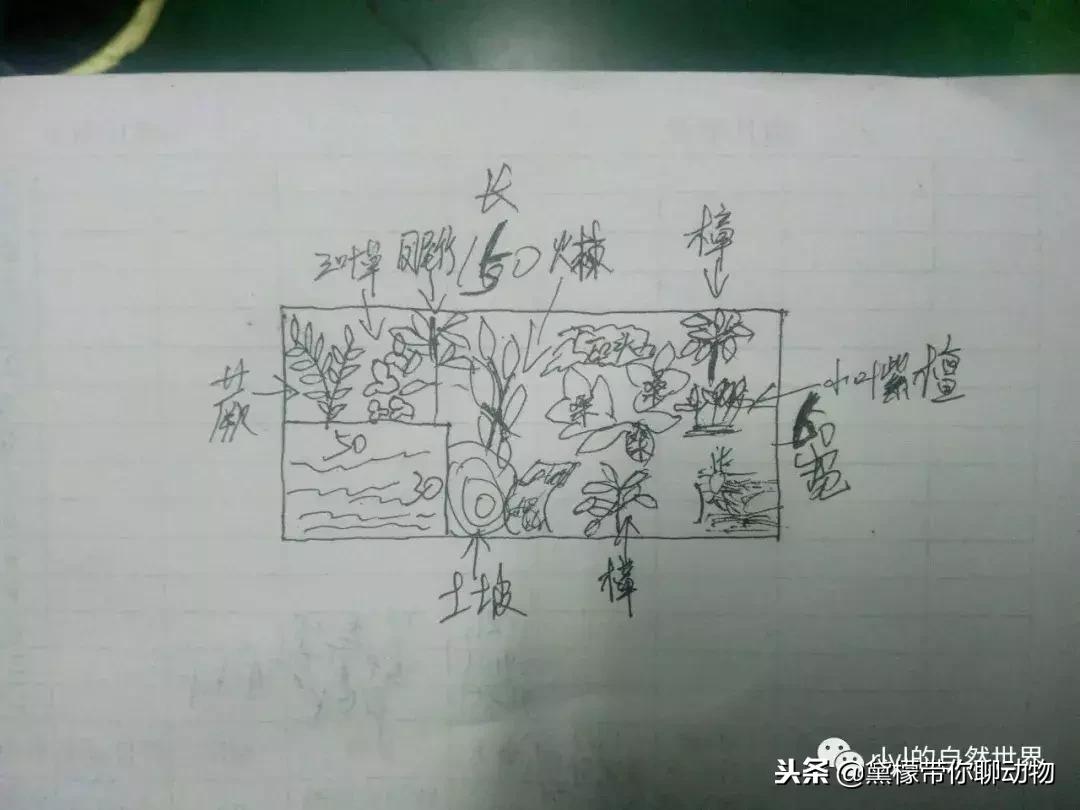 长
三叶草 凤尾竹 150 火棘 樟
石头
蕨
小叶紫檀
50
30
60
宽
土坡
樟
rlyl的自然世界
头条 @黛檬带你聊动物